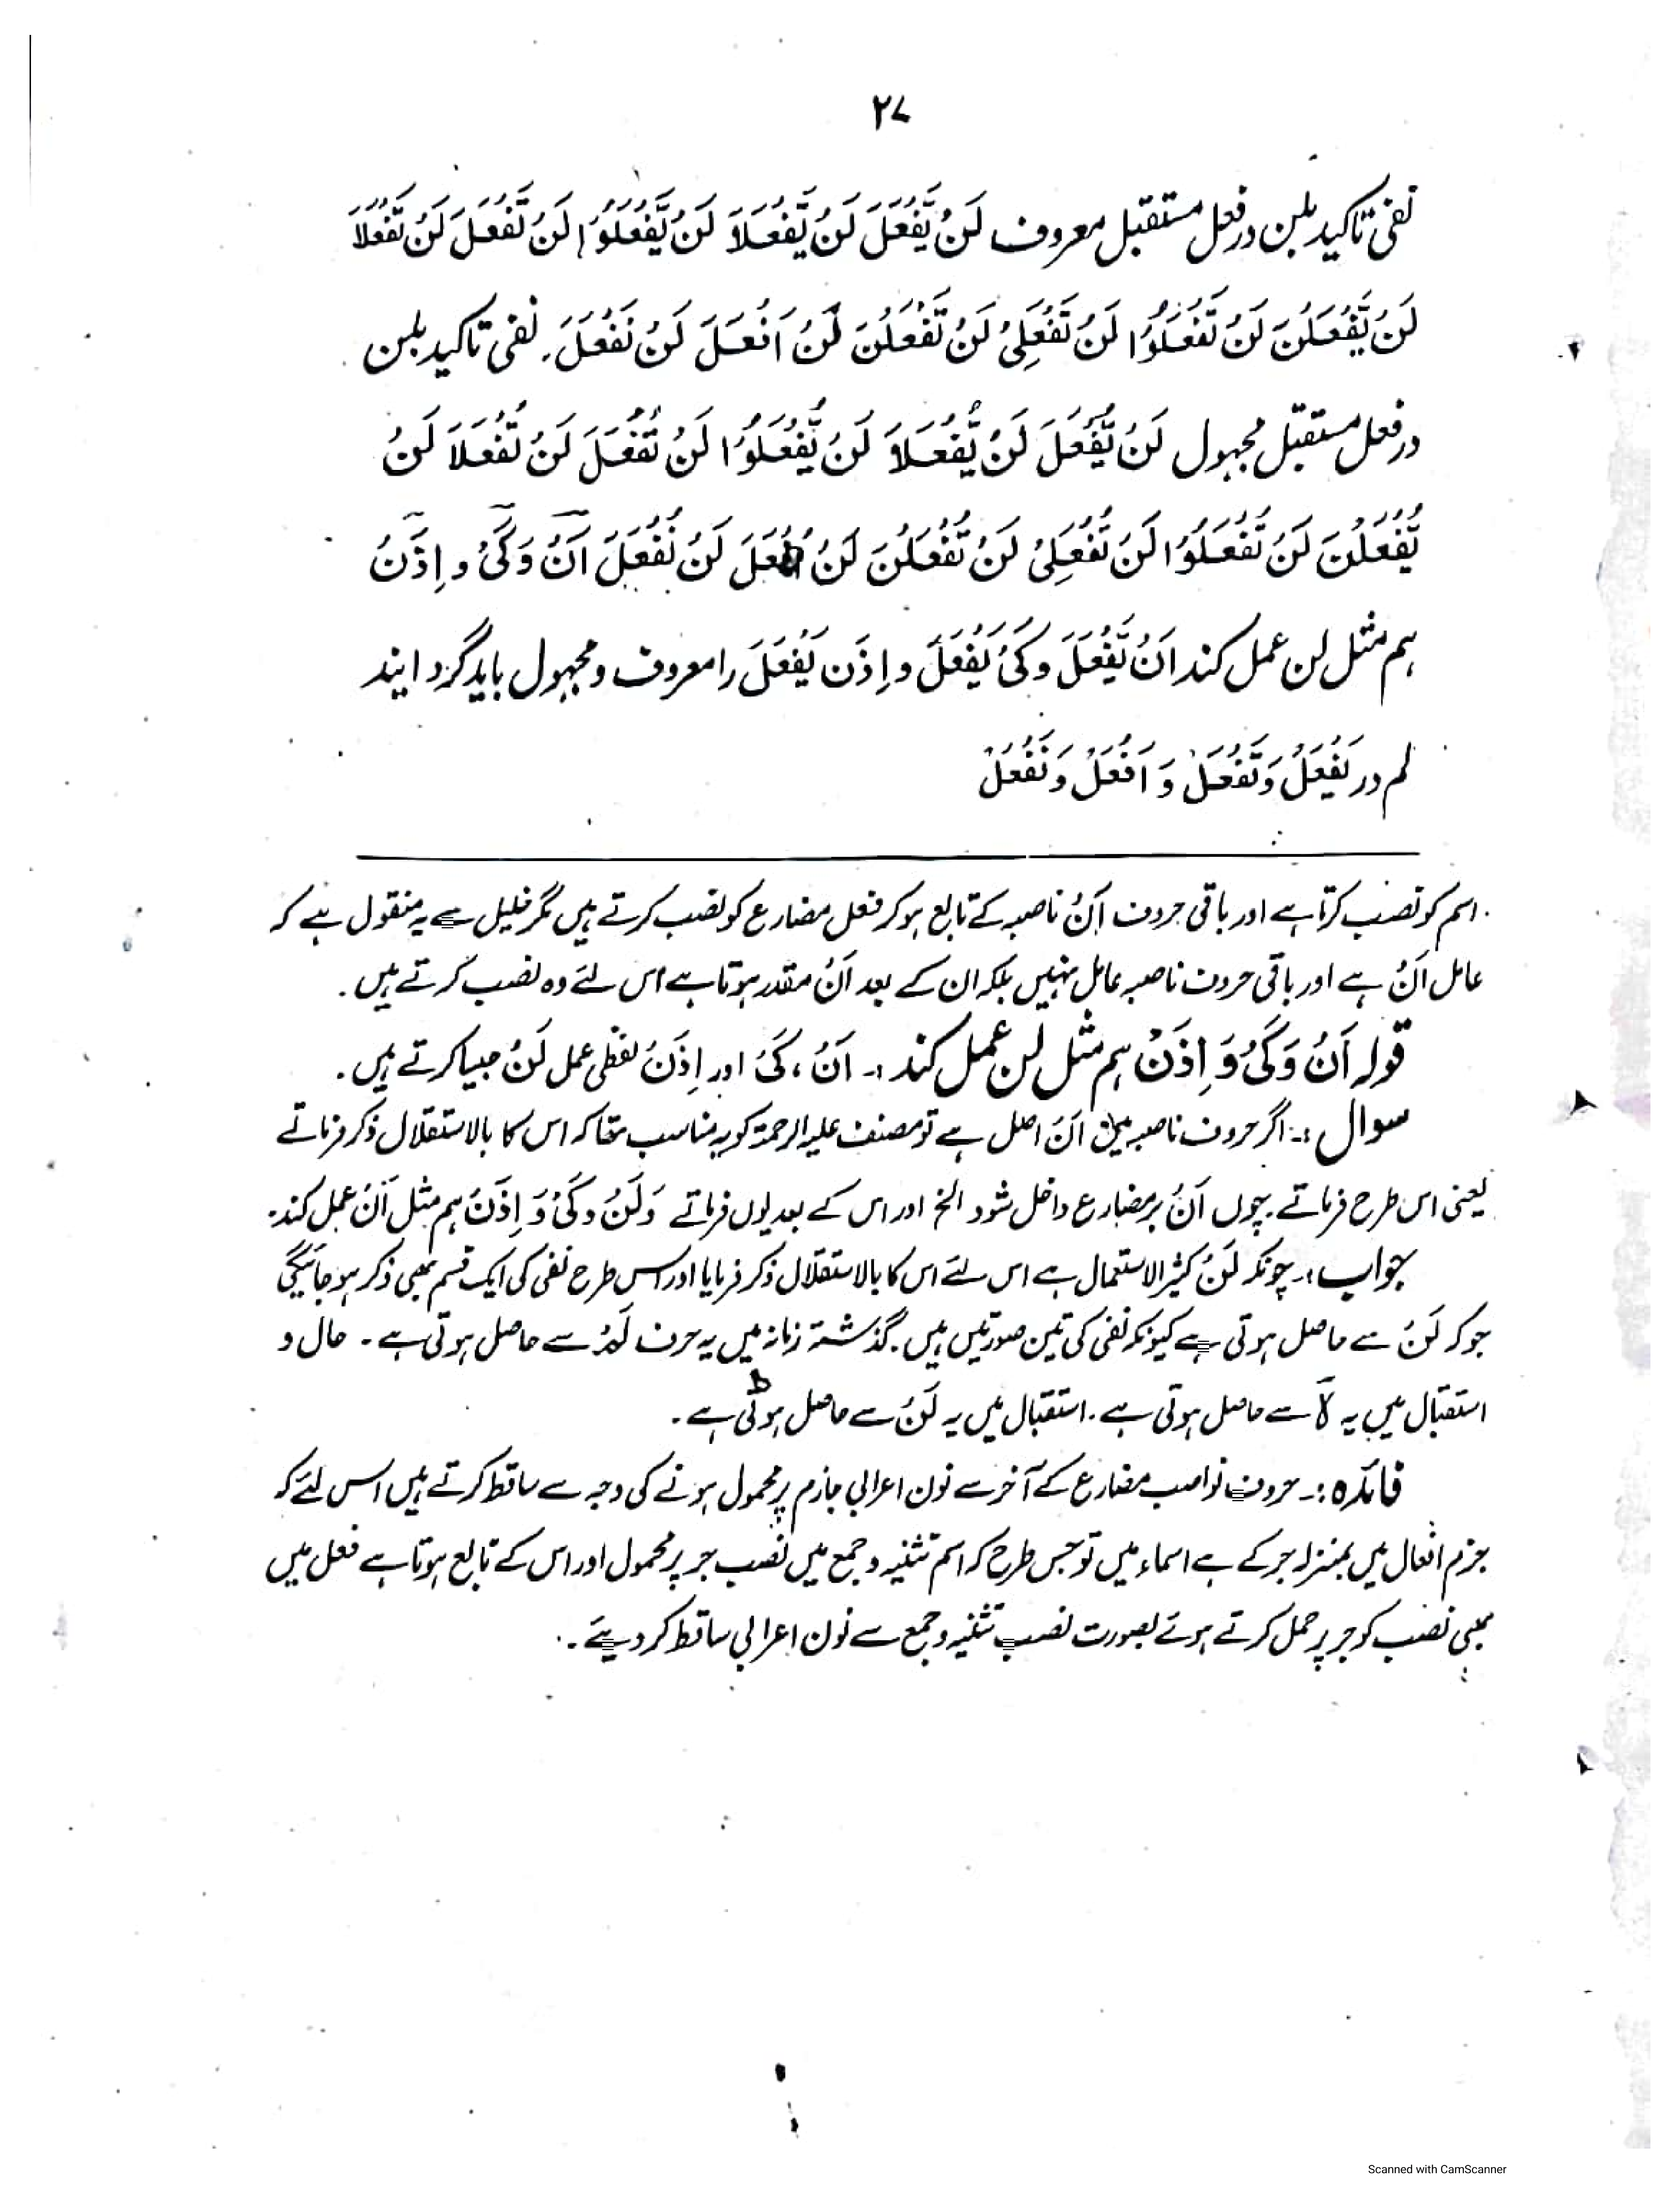 ۲۷
نفی تاکید بلن در فعل مستقبل معروف لَنْ یَّفْعَلَ لَنْ یَّفْعَلَا لَنْ یَّفْعَلُوْا لَنْ تَفْعَلَ لَنْ تَفْعَلَا
لَنْ یَّفْعَلْنَ لَنْ تَفْعَلُوْا لَنْ تَفْعَلِیْ لَنْ تَفْعَلْنَ لَنْ اَفْعَلَ لَنْ نَفْعَلَ۔ نفی تاکید بلن
در فعل مستقبل مجہول لَنْ یُّفْعَلَ لَنْ یُّفْعَلَا لَنْ یُّفْعَلُوْا لَنْ تُفْعَلَ لَنْ تُفْعَلَا لَنْ
یُّفْعَلْنَ لَنْ تُفْعَلُوْا لَنْ تُفْعَلِیْ لَنْ تُفْعَلْنَ لَنْ اُفْعَلَ لَنْ نُفْعَلَ اَنْ وَکَیْ و اِذَنْ
ہم مثل لن عمل کند اَنْ یَّفْعَلَ وکَیْ یَفْعَلَ و اِذَن یَفْعَلَ را معروف و مجہول باید گردایند
لم در یَفْعَلْ وَتَفْعَلْ وَ اَفْعَلْ وَنَفْعَلْ
اسم کو نصب کرتا ہے اور باقی حروف اَنْ ناصبہ کے تابع ہوکر فعل مضارع کو نصب کرتے ہیں مگر خلیل سے یہ منقول ہے کہ
عامل اَنْ ہے اور باقی حروف ناصبہ عامل نہیں بلکہ ان کے بعد اَنْ مقدر ہوتا ہے اس لئے وہ نصب کرتے ہیں۔
قولہ اَنْ وَکَیْ وَ اِذَنْ ہم مثل لن عمل کند :۔ اَنْ ، کَیْ اور اِذَنْ لفظی عمل لَنْ جیسا کرتے ہیں۔
سوال :۔ اگر حروف ناصبہ میں اَنْ اصل ہے تو مصنف علیہ الرحمۃ کو یہ مناسب تھا کہ اس کا بالاستقلال ذکر فرماتے
یعنی اس طرح فرماتے چوں اَنْ بر مضارع داخل شود الخ اور اس کے بعد یوں فرماتے وَلَنْ وکَیْ وَ اِذَنْ ہم مثل اَنْ عمل کند۔
جواب :۔ چونکہ لَنْ کثیر الاستعمال ہے اس لئے اس کا بالاستقلال ذکر فرمایا اور اس طرح نفی کی ایک قسم بھی ذکر ہو جائیگی
جو کہ لَنْ سے حاصل ہوتی ہے کیونکہ نفی کی تین صورتیں ہیں۔ گذشتہ زمانہ میں یہ حرف لَمْ سے حاصل ہوتی ہے ۔ حال و
استقبال میں یہ لَا سے حاصل ہوتی ہے۔ استقبال میں یہ لَنْ سے حاصل ہوتی ہے۔
فائدہ :۔ حروف نواصب مضارع کے آخر سے نون اعرابی جازم پر محمول ہونے کی وجہ سے ساقط کرتے ہیں اس لئے کہ
جزم افعال میں بمنزلہ جر کے ہے اسماء میں تو جس طرح کہ اسم تثنیہ و جمع میں نصب جر پر محمول اور اس کے تابع ہوتا ہے فعل میں
بھی نصب کو جر پر حمل کرتے ہوئے بصورت نصب تثنیہ و جمع سے نون اعرابی ساقط کر دیئے۔
Scanned with CamScanner